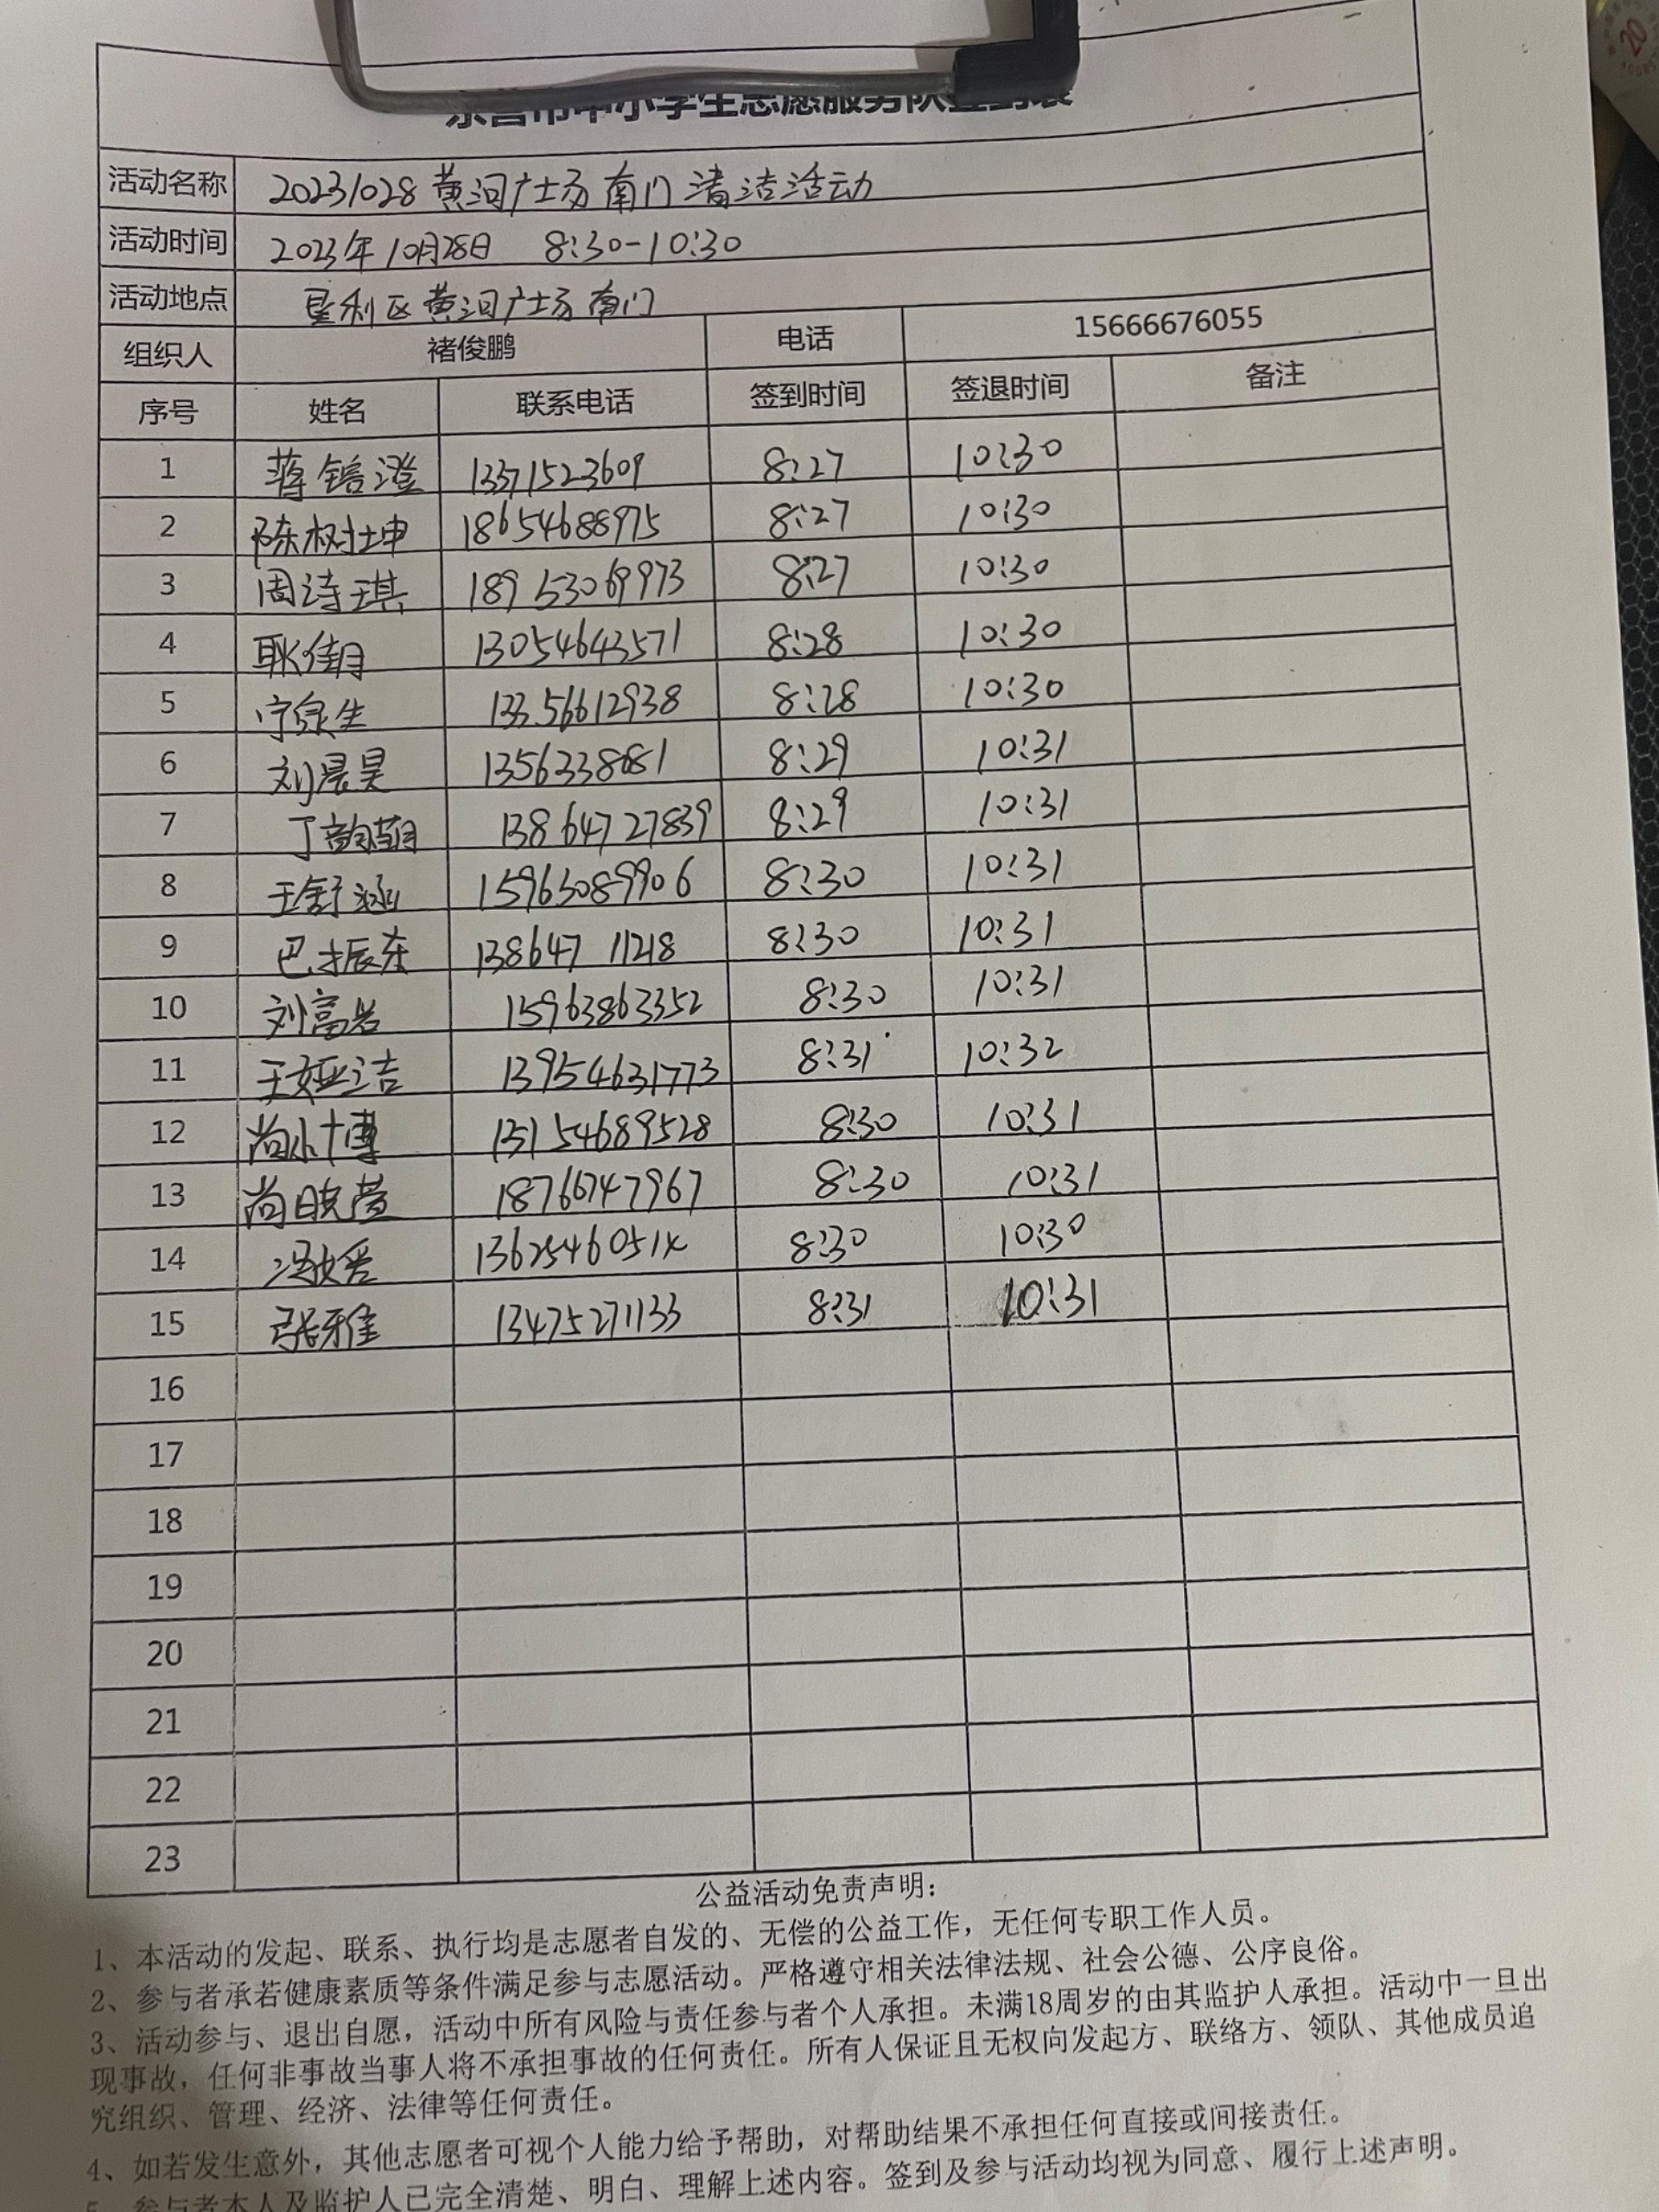 东营市中小学生志愿服务队签到表
活动名称 20231028黄河广场南门清洁活动
活动时间 2023年10月28日 8:30-10:30
活动地点 垦利区黄河广场南门
组织人 褚俊鹏 电话 15666676055
序号 姓名 联系电话 签到时间 签退时间 备注
1 蒋锫澄 13371523609 8:27 10:30
2 陈树坤 18654688975 8:27 10:30
3 周诗琪 18953069973 8:27 10:30
4 耿佳明 13054643571 8:28 10:30
5 宁绿生 13356612938 8:28 10:30
6 刘晨昊 1356338681 8:29 10:31
7 丁韵萌 13864727839 8:29 10:31
8 王舒涵 15963089906 8:30 10:31
9 巴振东 13864711218 8:30 10:31
10 刘富岩 15963863352 8:30 10:31
11 王娅洁 13954631773 8:31 10:32
12 尚小博 13154689528 8:30 10:31
13 尚晓萱 18766747967 8:30 10:31
14 冯敏爱 1362546051 8:30 10:30
15 张雅佳 13475271133 8:31 10:31
16
17
18
19
20
21
22
23
公益活动免责声明：
1、本活动的发起、联系、执行均是志愿者自发的、无偿的公益工作，无任何专职工作人员。
2、参与者承若健康素质等条件满足参与志愿活动。严格遵守相关法律法规、社会公德、公序良俗。
3、活动参与、退出自愿，活动中所有风险与责任参与者个人承担。未满18周岁的由其监护人承担。活动中一旦出
现事故，任何非事故当事人将不承担事故的任何责任。所有人保证且无权向发起方、联络方、领队、其他成员追
究组织、管理、经济、法律等任何责任。
4、如若发生意外，其他志愿者可视个人能力给予帮助，对帮助结果不承担任何直接或间接责任。
5、参与者本人及监护人已完全清楚、明白、理解上述内容。签到及参与活动均视为同意、履行上述声明。